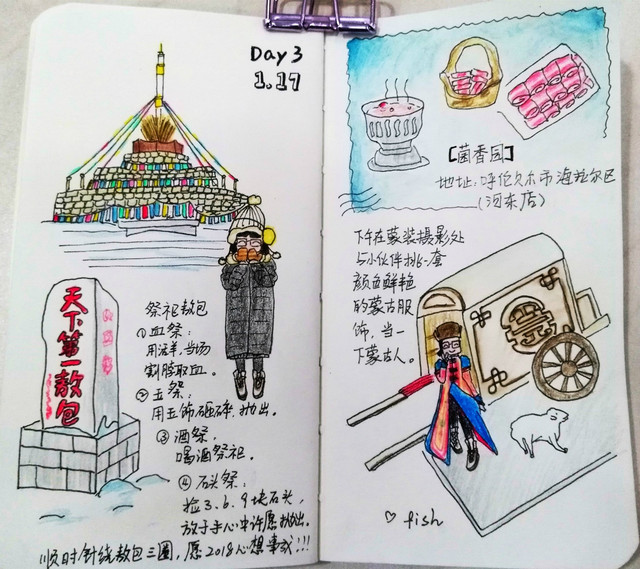 Day 3
1.17
天下第一敖包
祭祀敖包
①血祭：
用活羊，当场
割脖取血。
②玉祭：
用玉饰砸碎，抛出。
③酒祭，
喝酒祭祀。
④石头祭：
捡3.6.9块石头，
放于手心中许愿抛出。
顺时针绕敖包三圈，愿2018心想事成!!!
【菌香园】
地址：呼伦贝尔市海拉尔区
（河东店）
下午在蒙装摄影处
与小伙伴挑一套
颜色鲜艳
的蒙古服
饰，当一
下蒙古人。
♡ fish